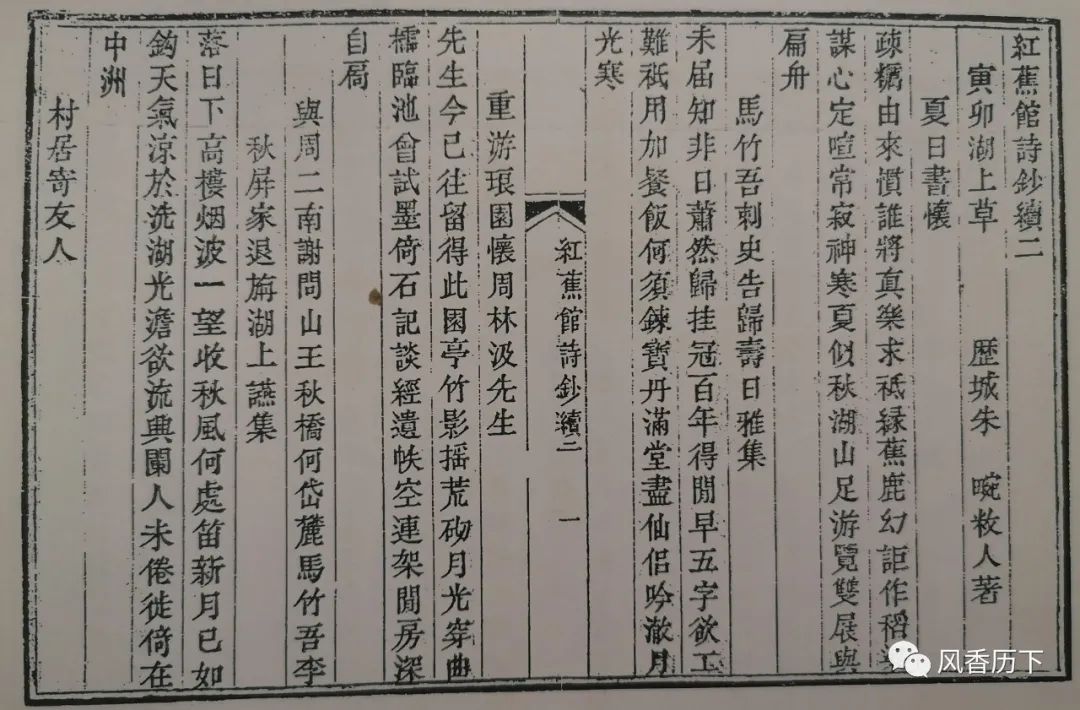 紅蕉館詩鈔續二
寅卯湖上草 歷城朱 畹敉人著
夏日書懷
疎糲由來慣誰將真樂求祗緣蕉鹿幻詎作稻
謀心定喧常寂神寒夏似秋湖山足游覽雙屐與
扁舟
馬竹吾刺史告歸壽日雅集
未届知非日蕭然歸挂冠百年得閒早五字欲工
難祗用加餐飯何須鍊寶丹滿堂盡仙侶吟澈月
光寒
紅蕉館詩鈔續二 一
重游琅園懷周林汲先生
先生今已往留得此園亭竹影摇荒砌月光穿曲
櫺臨池曾試墨倚石記談經遺帙空連架閒房深
自扃
與周二南謝問山王秋橋何岱麓馬竹吾李
秋屏家退旃湖上讌集
落日下高樓烟波一望收秋風何處笛新月已如
鈎天氣涼於洗湖光澹欲流興闌人未倦徙倚在
中洲
村居寄友人
风香历下